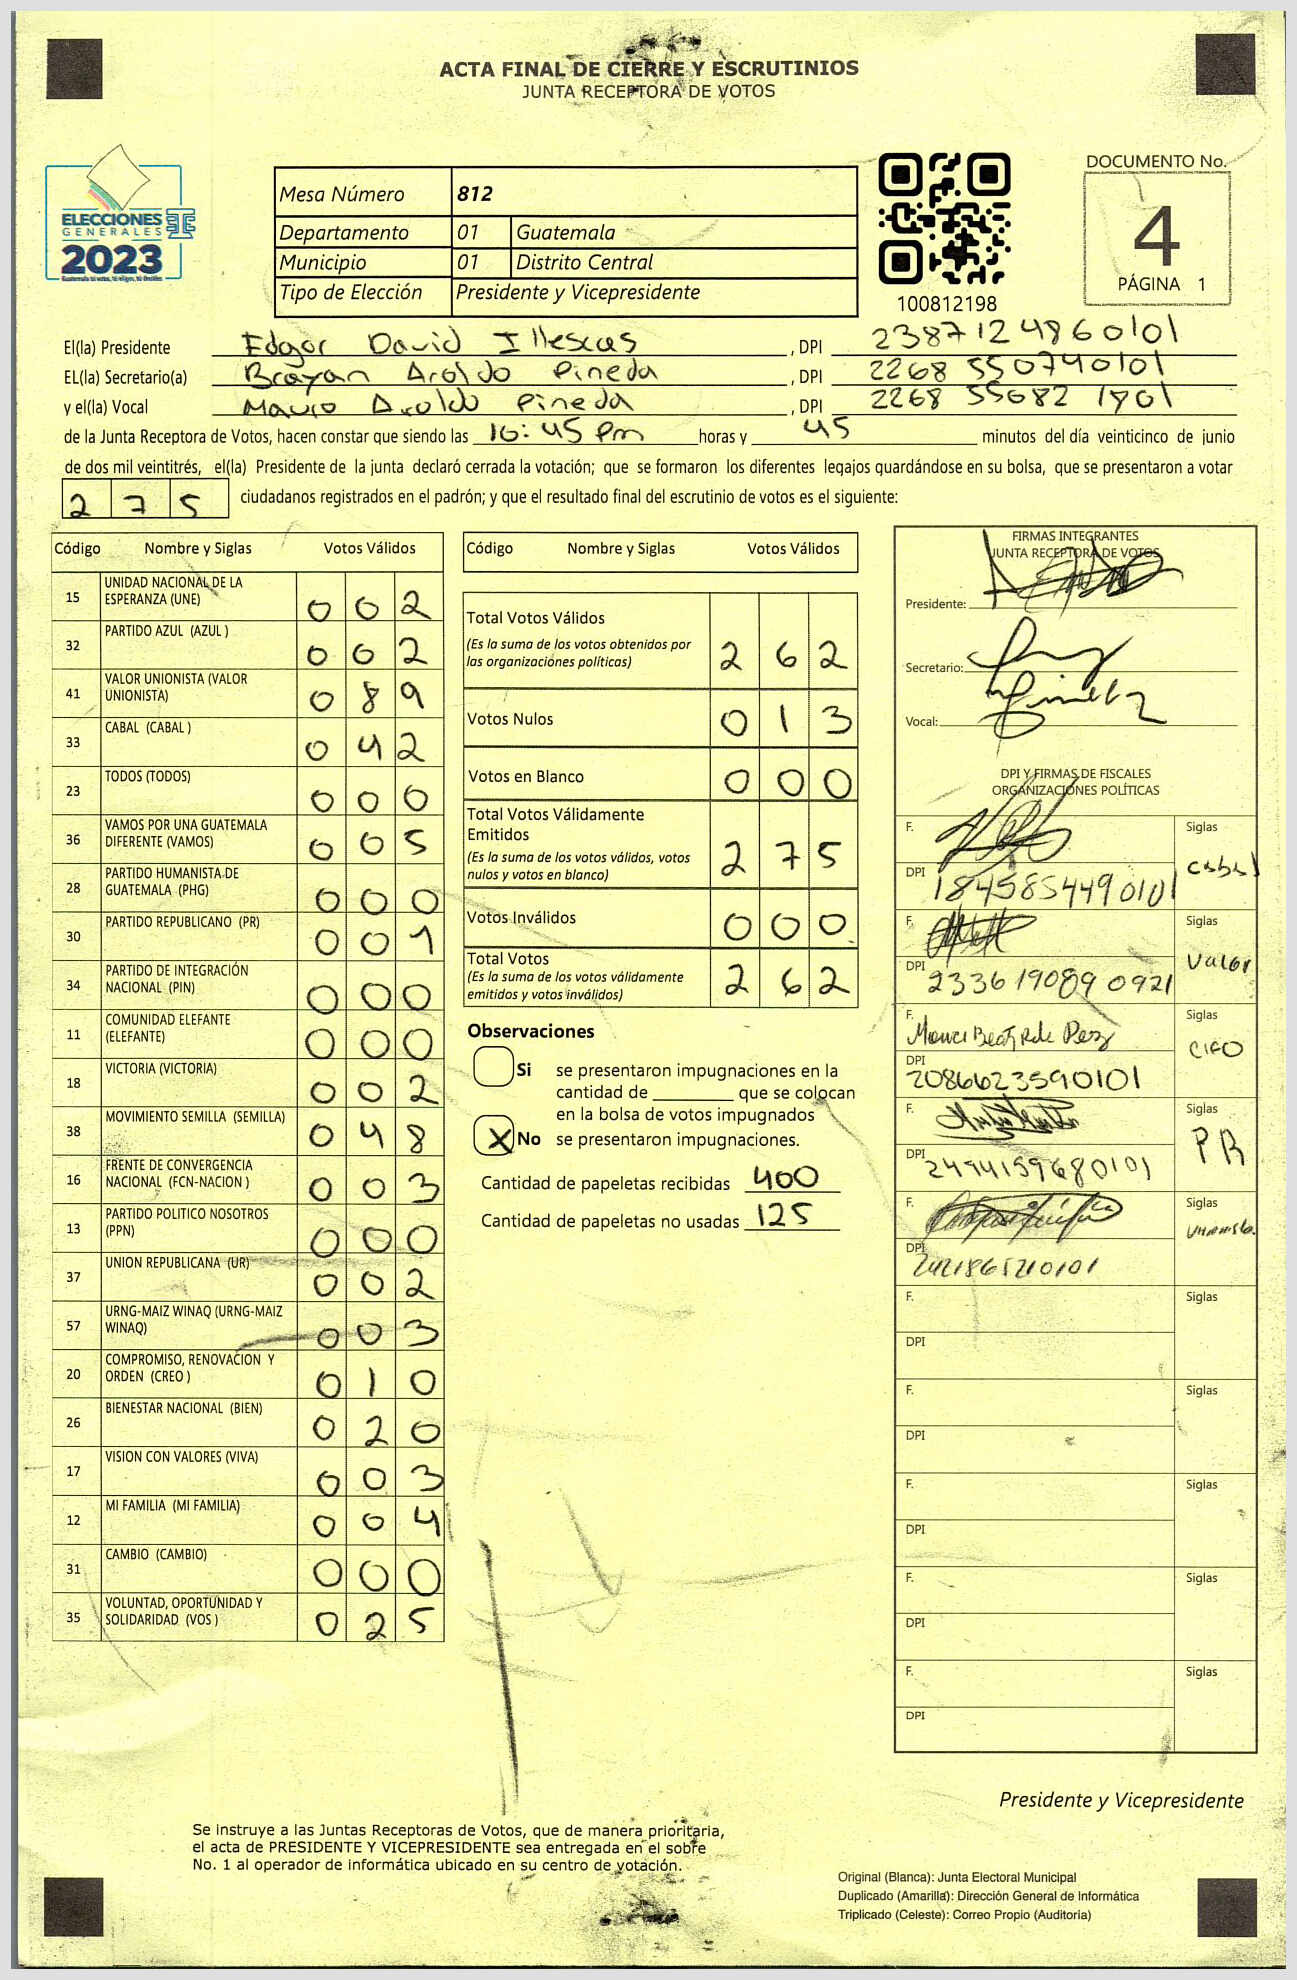 ACTA FINAL DE CIERRE Y ESCRUTINIOS
JUNTA RECEPTORA DE VOTOS
ELECCIONES
GENERALES
2023
Mesa Número 812
Departamento 01 Guatemala
Municipio 01 Distrito Central
Tipo de Elección Presidente y Vicepresidente
100812198
DOCUMENTO No.
4
PÁGINA 1
El(la) Presidente Edgar David Illescas , DPI 2387124860101
EL(la) Secretario(a) Brayan Aroldo Pineda , DPI 2268 550740101
y el(la) Vocal Mauro Aroldo Pineda , DPI 2268 55682 1801
de la Junta Receptora de Votos, hacen constar que siendo las 16:45 Pm horas y 45 minutos del día veinticinco de junio
de dos mil veintitrés, el(la) Presidente de la junta declaró cerrada la votación; que se formaron los diferentes legajos guardándose en su bolsa, que se presentaron a votar
2 7 5 ciudadanos registrados en el padrón; y que el resultado final del escrutinio de votos es el siguiente:
Código Nombre y Siglas Votos Válidos
15 UNIDAD NACIONAL DE LA
ESPERANZA (UNE) 0 0 2
32 PARTIDO AZUL (AZUL ) 0 0 2
41 VALOR UNIONISTA (VALOR
UNIONISTA) 0 8 9
33 CABAL (CABAL ) 0 4 2
23 TODOS (TODOS) 0 0 0
36 VAMOS POR UNA GUATEMALA
DIFERENTE (VAMOS) 0 0 5
28 PARTIDO HUMANISTA DE
GUATEMALA (PHG) 0 0 0
30 PARTIDO REPUBLICANO (PR) 0 0 1
34 PARTIDO DE INTEGRACIÓN
NACIONAL (PIN) 0 0 0
11 COMUNIDAD ELEFANTE
(ELEFANTE) 0 0 0
18 VICTORIA (VICTORIA) 0 0 2
38 MOVIMIENTO SEMILLA (SEMILLA) 0 4 8
16 FRENTE DE CONVERGENCIA
NACIONAL (FCN-NACION ) 0 0 3
13 PARTIDO POLITICO NOSOTROS
(PPN) 0 0 0
37 UNION REPUBLICANA (UR) 0 0 2
57 URNG-MAIZ WINAQ (URNG-MAIZ
WINAQ) 0 0 3
20 COMPROMISO, RENOVACION Y
ORDEN (CREO ) 0 1 0
26 BIENESTAR NACIONAL (BIEN) 0 2 0
17 VISION CON VALORES (VIVA) 0 0 3
12 MI FAMILIA (MI FAMILIA) 0 0 4
31 CAMBIO (CAMBIO) 0 0 0
35 VOLUNTAD, OPORTUNIDAD Y
SOLIDARIDAD (VOS ) 0 2 5
Código Nombre y Siglas Votos Válidos
Total Votos Válidos
(Es la suma de los votos obtenidos por
las organizaciones políticas) 2 6 2
Votos Nulos 0 1 3
Votos en Blanco 0 0 0
Total Votos Válidamente
Emitidos
(Es la suma de los votos válidos, votos
nulos y votos en blanco) 2 7 5
Votos Inválidos 0 0 0
Total Votos
(Es la suma de los votos válidamente
emitidos y votos inválidos) 2 6 2
Observaciones
Si se presentaron impugnaciones en la
cantidad de ________ que se colocan
en la bolsa de votos impugnados
X No se presentaron impugnaciones.
Cantidad de papeletas recibidas 400
Cantidad de papeletas no usadas 125
FIRMAS INTEGRANTES
JUNTA RECEPTORA DE VOTOS
Presidente:
Secretario:
Vocal:
DPI Y FIRMAS DE FISCALES
ORGANIZACIONES POLÍTICAS
F. Siglas
DPI 1845854490101 cabal
F. Siglas
DPI 2336 19089 0921 Valor
F. Siglas
DPI 2086623590101
F. Siglas
DPI 2494159680101 PR
F. Siglas
DPI
F. Siglas
DPI
F. Siglas
DPI
F. Siglas
DPI
F. Siglas
DPI
F. Siglas
DPI
Presidente y Vicepresidente
Se instruye a las Juntas Receptoras de Votos, que de manera prioritaria,
el acta de PRESIDENTE Y VICEPRESIDENTE sea entregada en el sobre
No. 1 al operador de informática ubicado en su centro de votación.
Original (Blanca): Junta Electoral Municipal
Duplicado (Amarilla): Dirección General de Informática
Triplicado (Celeste): Correo Propio (Auditoria)